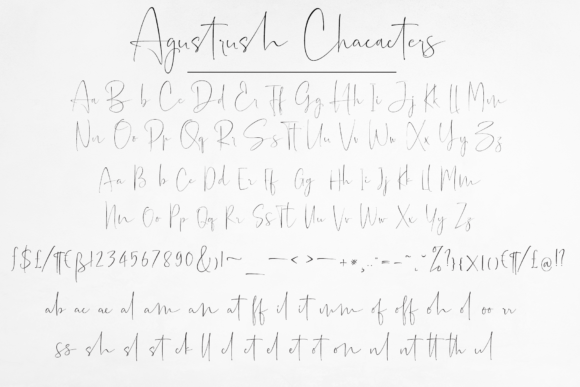 Agustrush Chacacters
Aa B b Cc Dd Er Ff Gg Hh Ii Jj Kk Ll Mm
Nn Oo Pp Qq Rr Ss Tt Uu Vv Ww Xx Yy Zz
Aa B b Cc Dd Er Ff Gg Hh Ii Jj Kk Ll Mm
Nn Oo Pp Qq Rr Ss Tt Uu Vv Ww Xx Yy Zs
1234567890&
ab ac ae al am an at ff il it mm of off oh ol oo
ss sh sl st ck ll el et el et ot on nl nt tt th ul